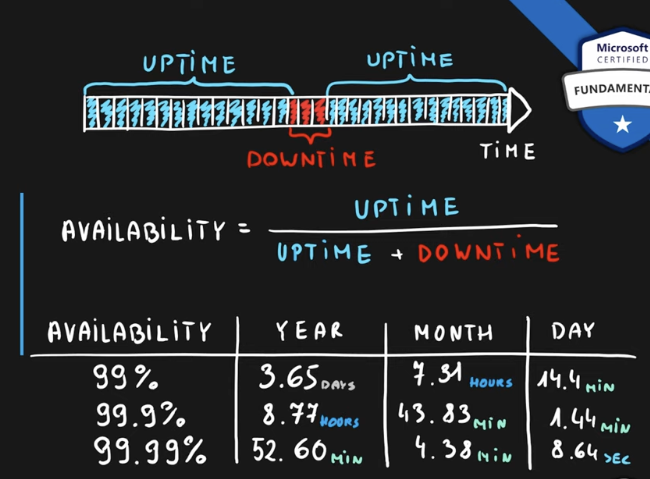 UPTIME UPTIME
Microsoft
CERTIFIED
DOWNTIME TIME
AVAILABILITY = UPTIME
UPTIME + DOWNTIME
AVAILABILITY YEAR MONTH DAY
99% 3.65 DAYS 7.31 HOURS 14.4 MIN
99.9% 8.77 HOORS 43.83 MIN 1.44 MIN
99.99% 52.60 MIN 4.38 MIN 8.64 SEC